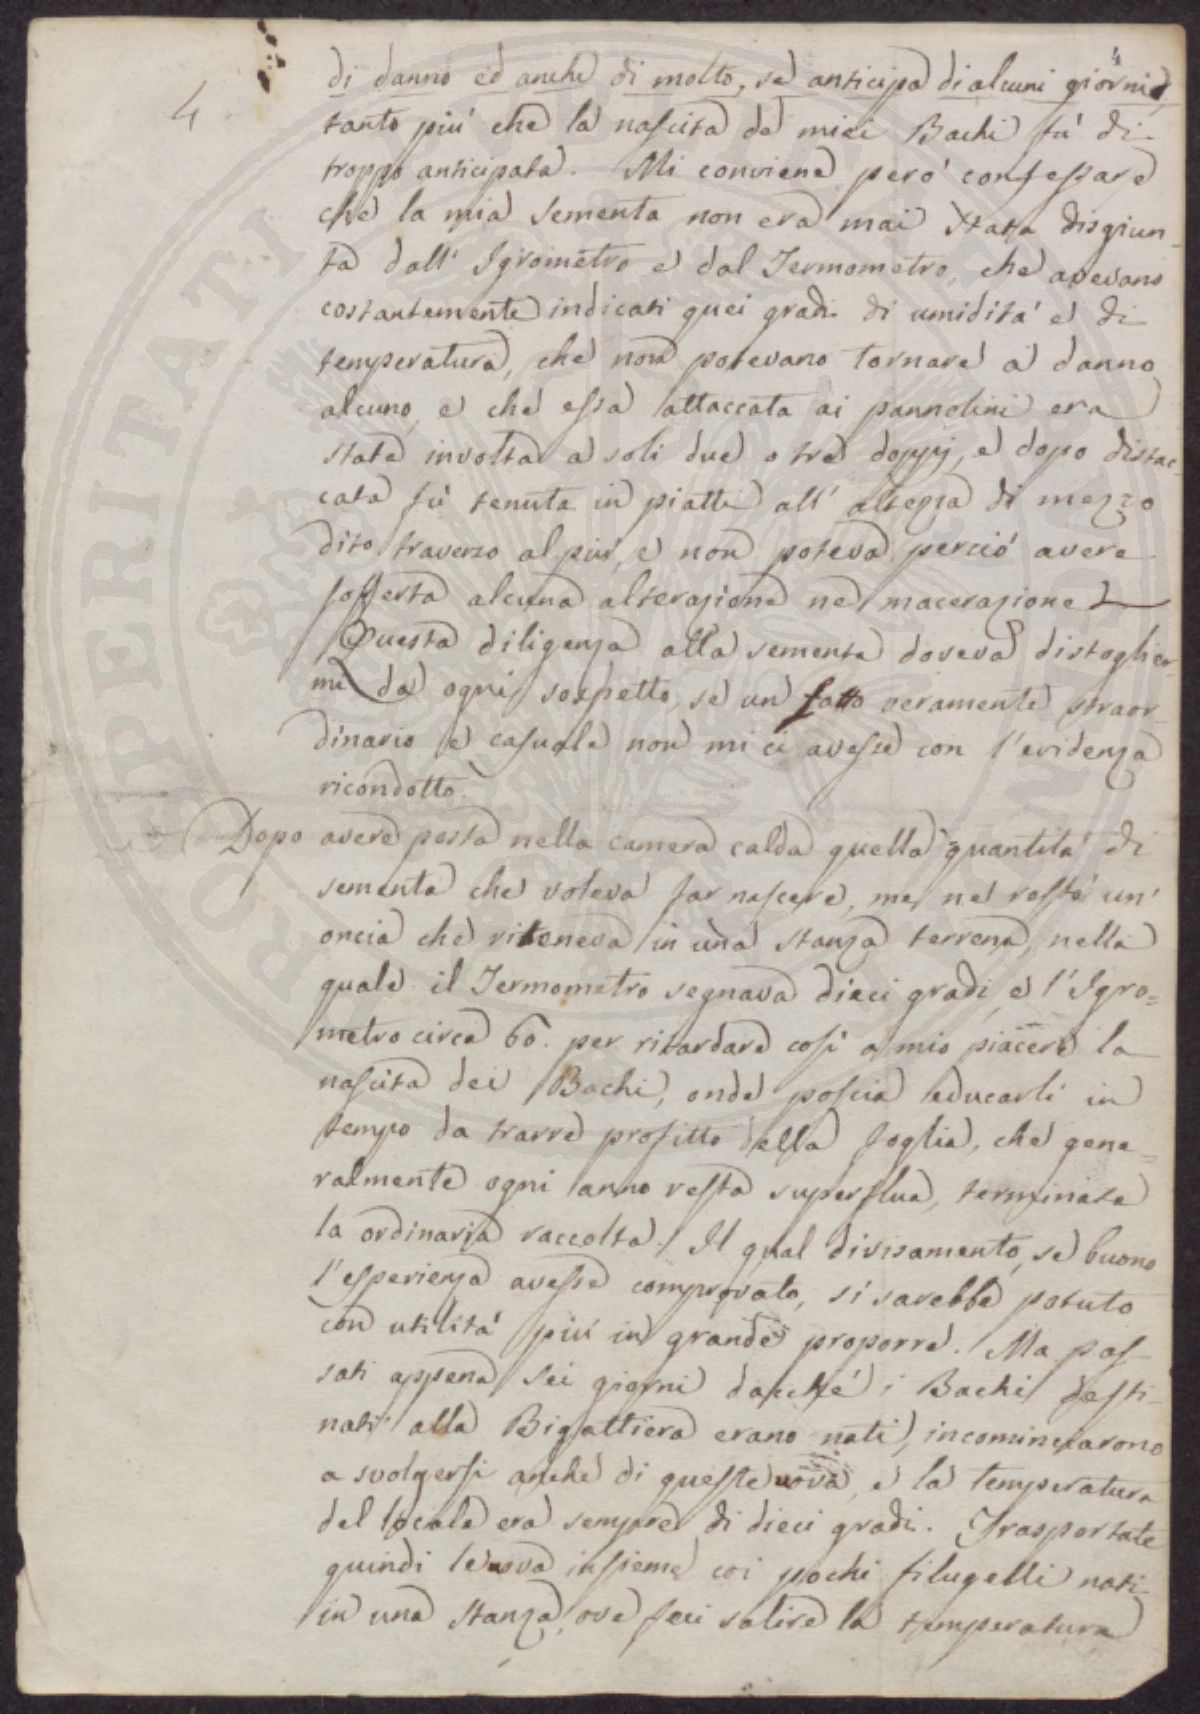 4
di danno ed anche di molto, se anticipa di alcuni giorni,
tanto piú che la nascita de' miei Bachi fú di
troppo anticipata. Mi conviene peró confessare
che la mia sementa non era mai stata disgiun-
ta dall' Igrometro e dal Termometro, che avevano
costantemente indicati quei gradi di umiditá e di
temperatura, che non potevano tornare a danno
alcuno, e che essa attaccata ai pannolini era
stata involta a soli due o tre doppj, e dopo distac-
cata fú tenuta in piatti all' altezza di mezzo
dito traverso al piú, e non poteva perció avere
sofferta alcuna alterazione ne macerazione
Questa diligenza alla sementa doveva distoglier-
mi da ogni sospetto, se un fatto veramente straor-
dinario e casuale non mi ci avesse con l'evidenza
ricondotto.
Dopo avere posta nella camera calda quella quantitá di
sementa che voleva far nascere, me ne restó un'
oncia che riteneva in una stanza terrena, nella
quale il Termometro segnava dieci gradi, e l'Igro=
metro circa 60. per ritardare cosí a mio piacere la
nascita dei Bachi, onde poscia educarli in
tempo da trarre profitto della foglia, che gene=
ralmente ogni anno resta superflua, terminata
la ordinaria raccolta. Il qual divisamento, se buono
l'esperienza avesse comprovato, si sarebbe potuto
con utilitá piú in grande proporre. Ma pas-
sati appena sei giorni dacché i Bachi desti-
nati alla Bigattiera erano nati, incominciarono
a svolgersi anche di queste uova, e la temperatura
del locale era sempre di dieci gradi. Trasportate
quindi le uova insieme coi pochi filugelli nati
in una stanza, ove feci salire la temperatura
PROSPERITATI PUBLICAE